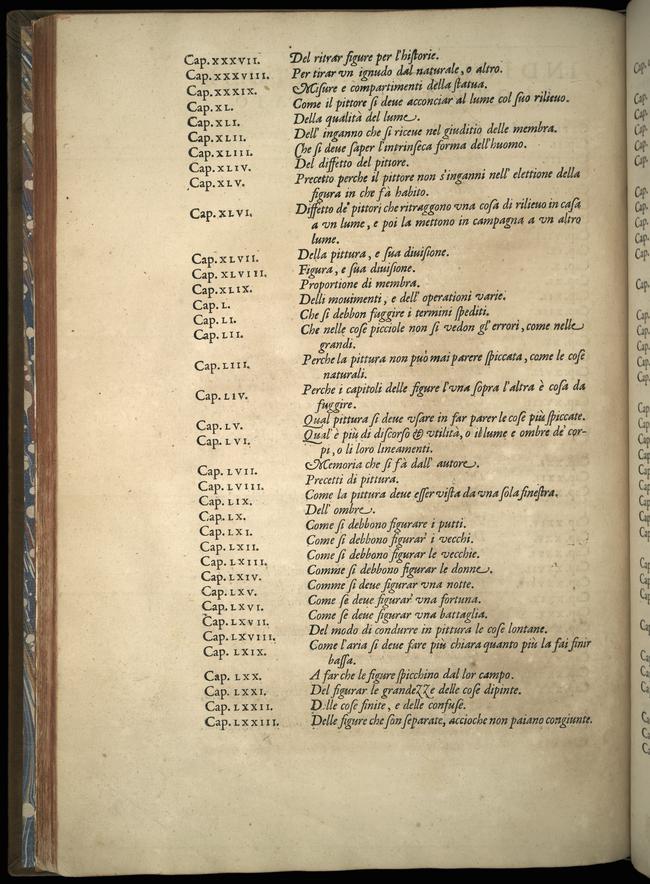 Cap. XXXVII. Del ritrar figure per l'historie.
Cap. XXXVIII. Per tirar vn ignudo dal naturale, o altro.
Cap. XXXIX. Misure e compartimenti della statua.
Cap. XL. Come il pittore si deue acconciar al lume col suo rilieuo.
Cap. XLI. Della qualità del lume.
Cap. XLII. Dell' inganno che si riceue nel giuditio delle membra.
Cap. XLIII. Che si deue saper l'intrinseca forma dell'huomo.
Cap. XLIV. Del diffetto del pittore.
Cap. XLV. Precetto perche il pittore non s'inganni nell' elettione della
figura in che fà habito.
Cap. XLVI. Diffetto de' pittori che ritraggono vna cosa di rilieuo in casa
a vn lume, e poi la mettono in campagna a vn altro
lume.
Cap. XLVII. Della pittura, e sua diuisione.
Cap. XLVIII. Figura, e sua diuisione.
Cap. XLIX. Proportione di membra.
Cap. L. Delli mouimenti, e dell' operationi varie.
Cap. LI. Che si debbon fuggire i termini spediti.
Cap. LII. Che nelle cose picciole non si vedon gl' errori, come nelle
grandi.
Cap. LIII. Perche la pittura non può mai parere spiccata, come le cose
naturali.
Cap. LIV. Perche i capitoli delle figure l'vna sopra l'altra è cosa da
fuggire.
Cap. LV. Qual pittura si deue vsare in far parer le cose più spiccate.
Cap. LVI. Qual' è più di discorso & vtilità, o il lume e ombre de' cor-
pi, o li loro lineamenti.
Cap. LVII. Memoria che si fà dall' autore.
Cap. LVIII. Precetti di pittura.
Cap. LIX. Come la pittura deue esser vista da vna sola finestra.
Cap. LX. Dell' ombre.
Cap. LXI. Come si debbono figurare i putti.
Cap. LXII. Come si debbono figurar' i vecchi.
Cap. LXIII. Come si debbono figurar le vecchie.
Cap. LXIV. Comme si debbono figurar le donne.
Cap. LXV. Comme si deue figurar vna notte.
Cap. LXVI. Come se deue figurar' vna fortuna.
Cap. LXVII. Come se deue figurar vna battaglia.
Cap. LXVIII. Del modo di condurre in pittura le cose lontane.
Cap. LXIX. Come l'aria si deue fare più chiara quanto più la fai finir
bassa.
Cap. LXX. A far che le figure spicchino dal lor campo.
Cap. LXXI. Del figurar le grandezze delle cose dipinte.
Cap. LXXII. Delle cose finite, e delle confuse.
Cap. LXXIII. Delle figure che son separate, accioche non paiano congiunte.